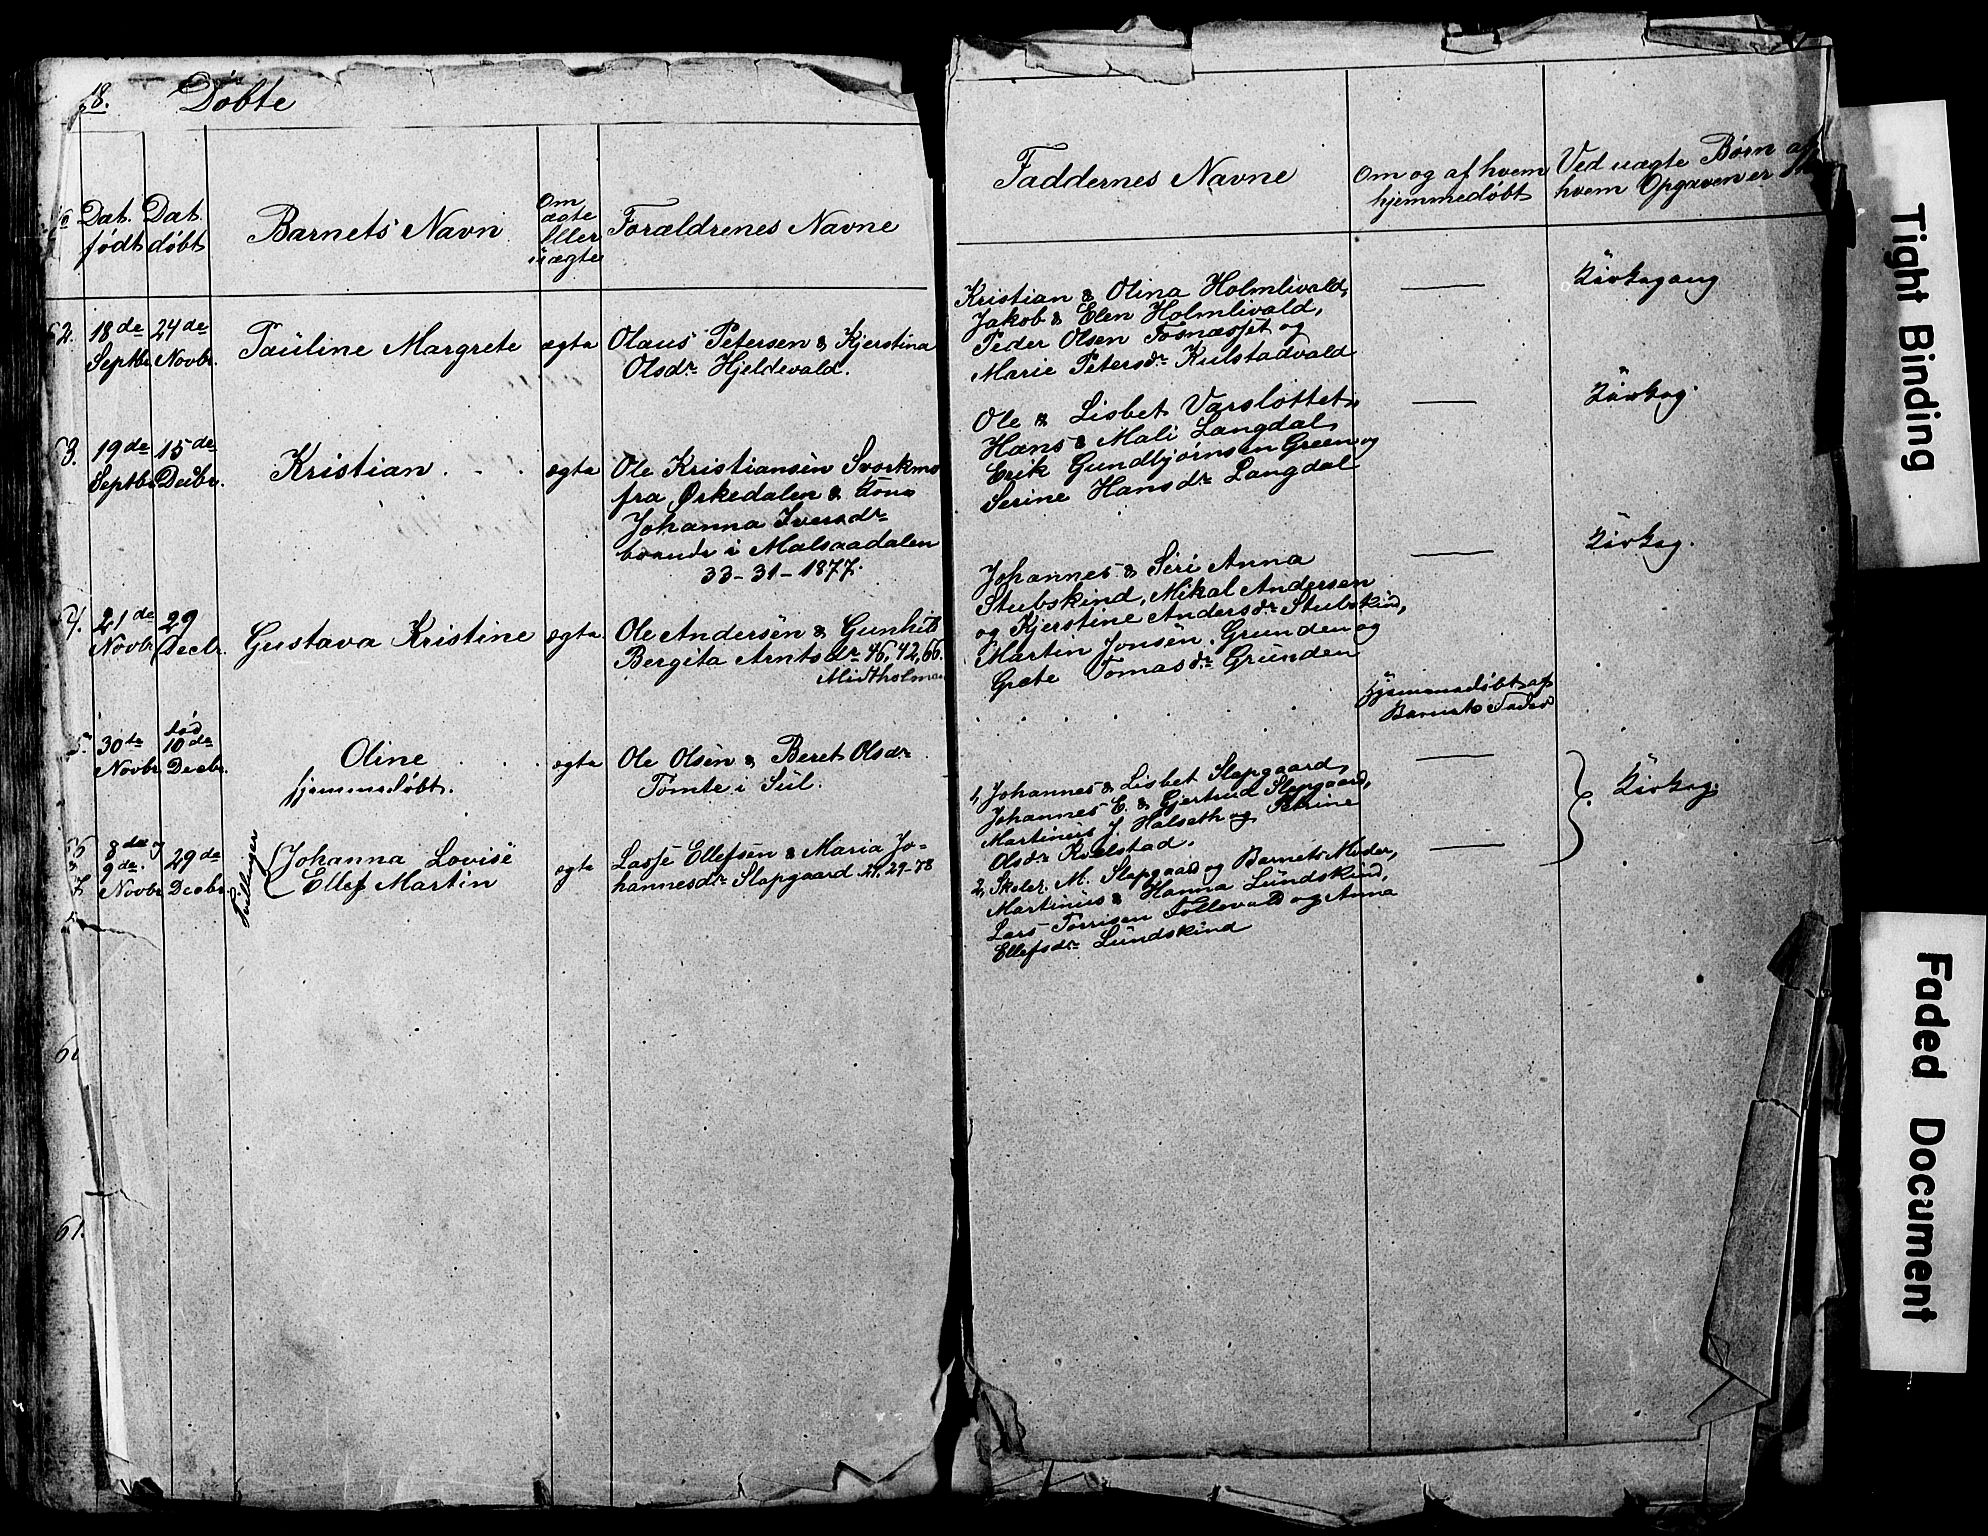 18. Døbte
Dat. født
Dat. døbt
Barnets Navn
Om ægte eller uægte
Forældrenes Navne
Faddernes Navne
Om og af hvem
hjemmedøbt
Ved uægte Børn af
hvem Opgaven er
62.
18de
Septbr.
24de
Novbr.
Pauline Margrete
ægte
Olaus Petersen & Kjerstina
Olsdr Hjeldevald.
Kristian & Olina Holmlivald,
Jakob & Elen Holmlivald,
Peder Olsen Fosnæsset og
Marie Petersdr Kulstadvald
Kirkegang
63.
19de
Septbr
15de
Decbr.
Kristian
ægte
Ole Kristiansen Svorkmo
fra Ørkedalen & Kone
Johanna Iversdr
boende i Malsaadalen
33-31-1877.
Ole & Lisbet Varslottet,
Hans & Mali Langdal,
Erik Gundbjørnsen Green og
Serine Hansdr Langdal
Kirkeg.
21de
Novbr
29
Decbr.
Gustava Kristine
ægte
Ole Andersen & Gunhild
Bergita Arntsdr 46, 42, 66.
Midtholmen
Johannes & Siri Anna
Stubskind, Mikal Andersen
og Kjerstine Andersdr Stubskind,
Martin Jonsen Grunden og
Grete Tomasdr Grunden
Kirkeg.
5.
30te
Novbr
død
10de
Decbr.
Oline
hjemmedøbt.
ægte
Ole Olsen & Beret Olsdr
Tomte i Sul.
Hjemmedøbt af
Barnets Fader
8de og
9de
Novbr
29de
Decbr.
Tvillinger
Johanna Lovise
Ellef Martin
ægte
Lasse Ellefsen & Maria Jo-
hannesdr Slapgaard 29-78
1, Johannes & Lisbet Slapgaard,
Johannes E. & Gjertrud Slapgaard,
Martinus J. Halseth og Petrine
Olsdr Kvelstad.
2, Skoler. M. Slapgaard og Barnets Moder,
Martinus & Hanna Lundskind,
Lars Torrisen Tollevald og Anna
Ellefsdr Lundskind
Kirkeg.
61.
Tight Binding
Faded Document